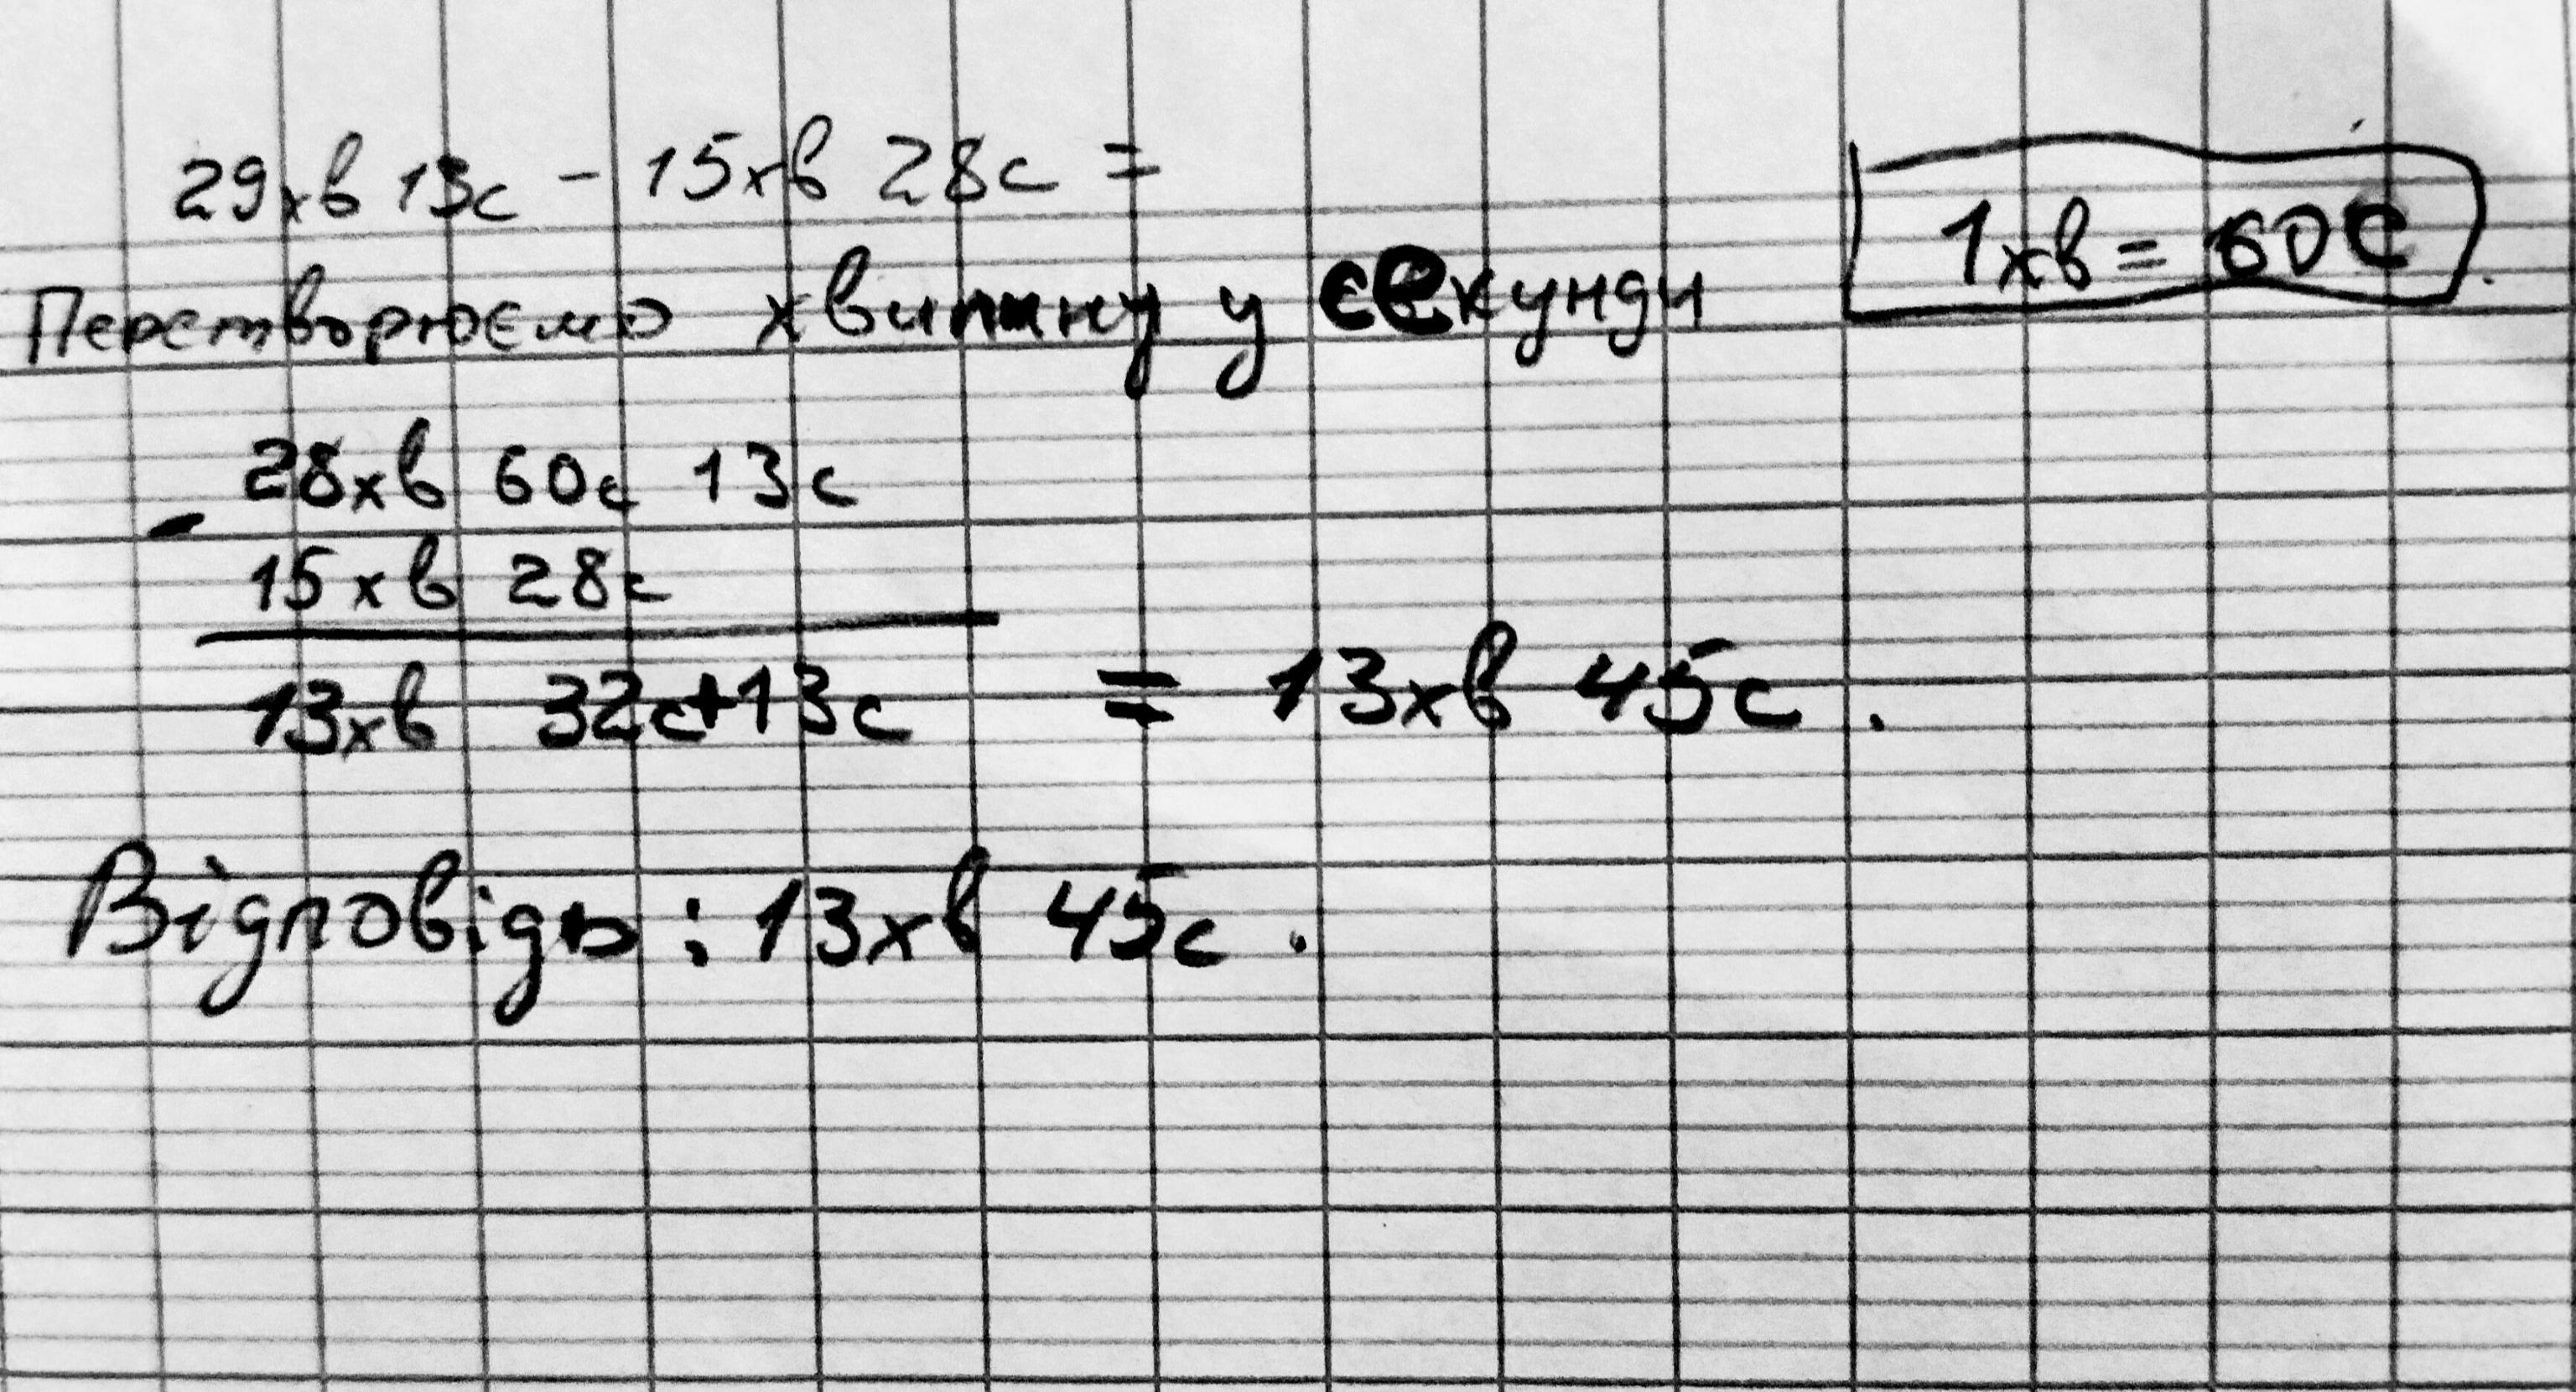 29хв 13с - 15хв 28с =
1хв = 60с
Перетворюємо хвилину у секунди
28хв 60с 13с
-
15хв 28с
13хв 32с+13с = 13хв 45с.
Відповідь: 13хв 45с.